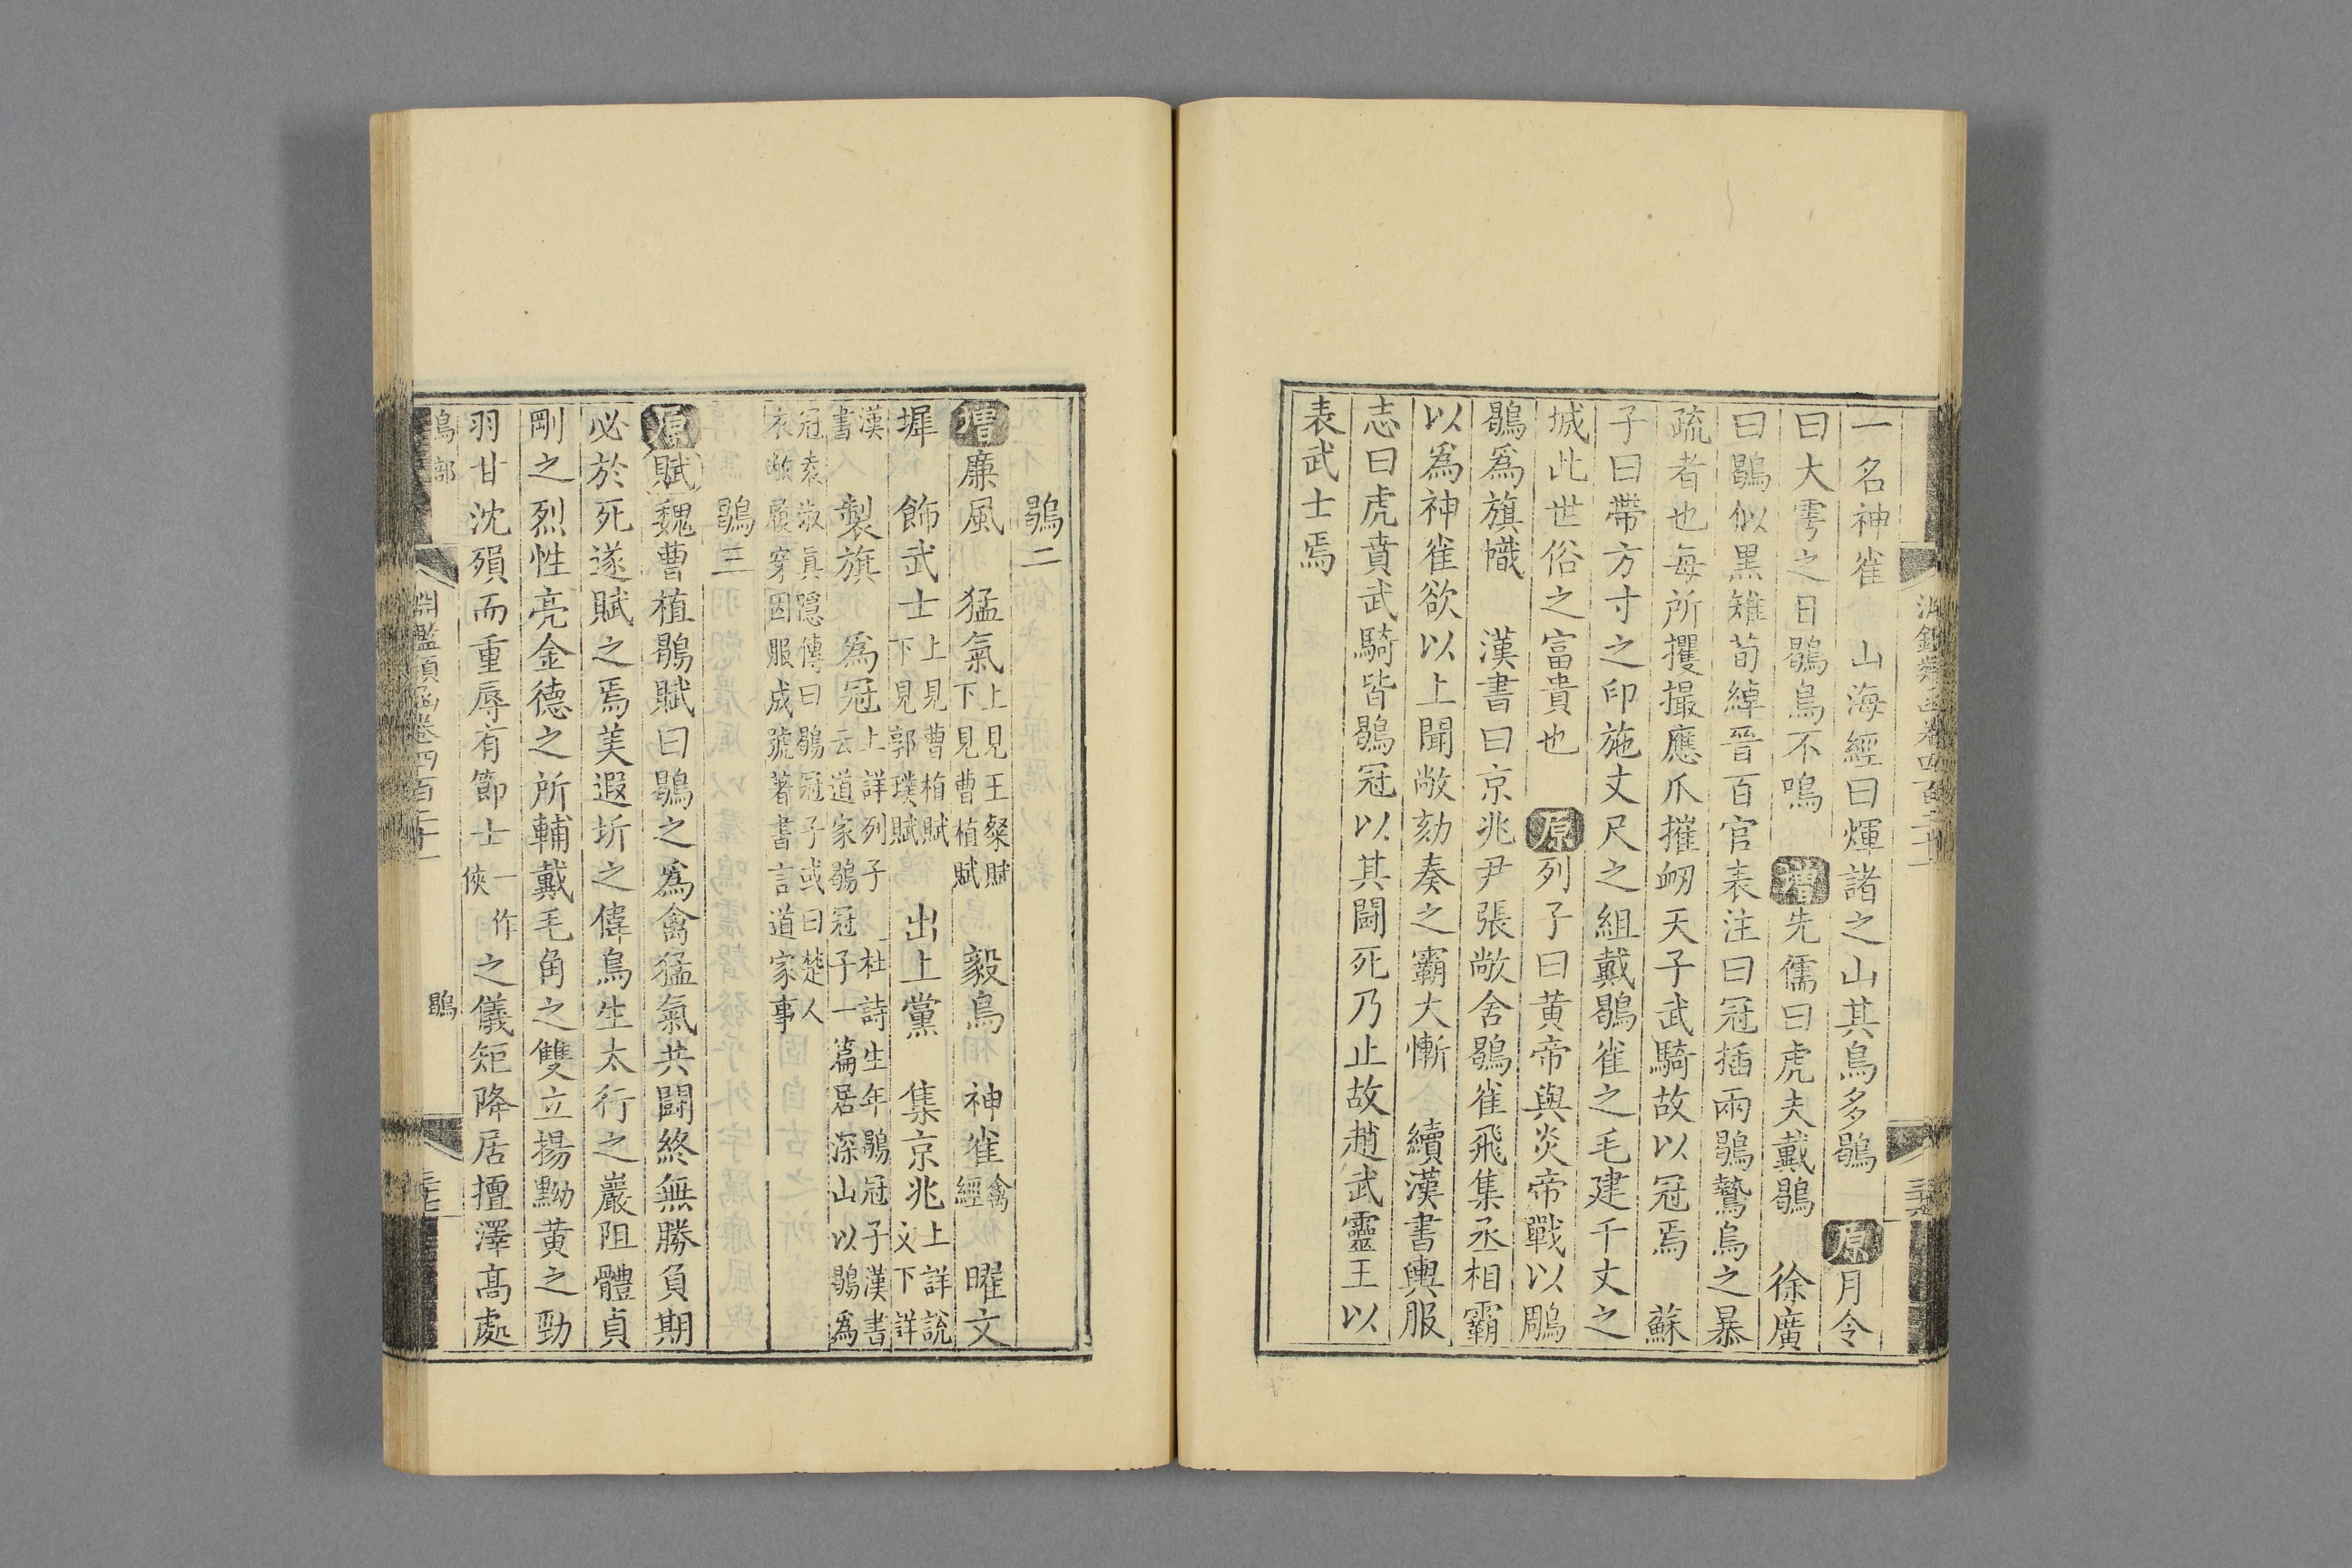 一名神雀　山海經曰煇諸之山其鳥多鶡　原月令
曰大雪之日鶡鳥不鳴　增先儒曰虎夫戴鶡　徐廣
曰鶡似黑雉荀綽晉百官表注曰冠插兩鶡鷙鳥之暴
疏者也每所攫撮應爪摧衂天子武騎故以冠焉　蘇
子曰帶方寸之印施丈尺之組戴鶡雀之毛建千丈之
城此世俗之富貴也　原列子曰黄帝與炎帝戰以鵰
鶡爲旗幟　漢書曰京兆尹張敞舍鶡雀飛集丞相霸
以爲神雀欲以上聞敞劾奏之霸大慚　續漢書輿服
志曰虎賁武騎皆鶡冠以其鬭死乃止故趙武靈王以
表武士焉
鶡二
增廉風　猛氣上見王粲賦下見曹植賦　毅鳥　神雀禽經　曜文
墀　飾武士上見曹植賦下見郭璞賦　出上黨　集京兆上詳說文下詳
漢書　製旗　爲冠上詳列子　杜詩生年鶡冠子漢書云道家鶡冠子一篇居深山以鶡爲
冠袁淑真隱傳曰鶡冠子或曰楚人衣敝履穿因服成號著書言道家事
鶡三
原賦魏曹植鶡賦曰鶡之爲禽猛氣共鬭終無勝負期
必於死遂賦之焉美遐圻之偉鳥生太行之巖阻體貞
剛之烈性亮金德之所輔戴毛角之雙立揚黝黄之勁
羽甘沈殞而重辱有節士一作俠之儀矩降居擅澤高處
鳥部　鶡
淵鑑類函卷四百二十一